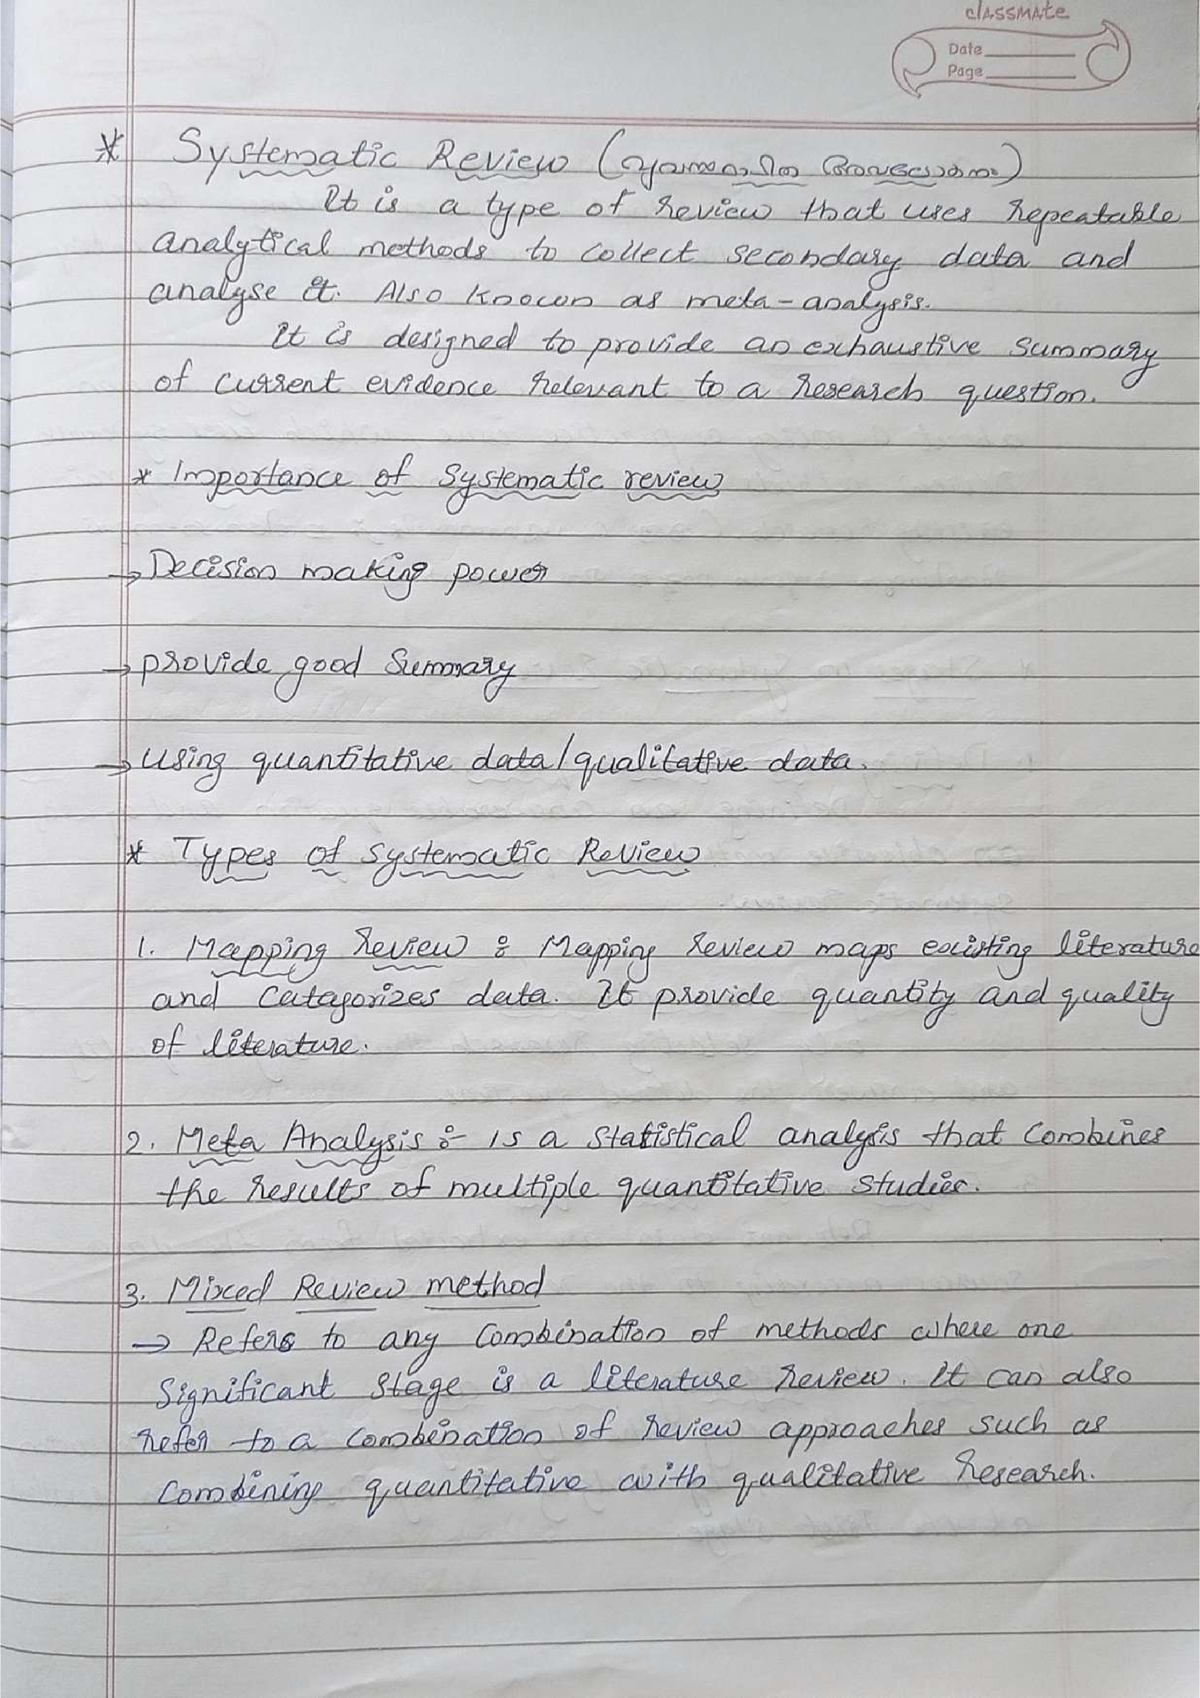 classmate
Date
Page
* Systematic Review (
It is a type of review that uses repeatable
analytical methods to collect secondary data and
analyse it. Also known as meta-analysis.
It is designed to provide an exhaustive summary
of current evidence relevant to a research question.
* Importance of Systematic review
→ Decision making power
→ provide good Summary
→ using quantitative data/qualitative data.
* Types of Systematic Review
1. Mapping Review : Mapping review maps existing literature
and catagorizes data. It provide quantity and quality
of literature.
2. Meta Analysis :- is a statistical analysis that combines
the results of multiple quantitative studies.
3. Mixed Review method
→ Refers to any combination of methods where one
significant stage is a literature review. It can also
refer to a combination of review approaches such as
combining quantitative with qualitative research.